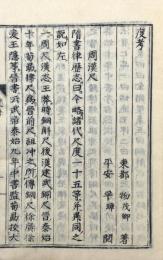 度考
東都 物茂卿 著
平安 平璋 閱
周漢尺
隋書律歷志曰今略諸代尺度一十五等并異同之
說如左
一周尺漢志王莽時銅斛尺後漢建武銅尺晉泰始
十年荀勗律尺為晉前尺祖沖之所傳銅尺徐廣徐
爰王隱等晉書云武帝泰始九年中書監荀勗校太